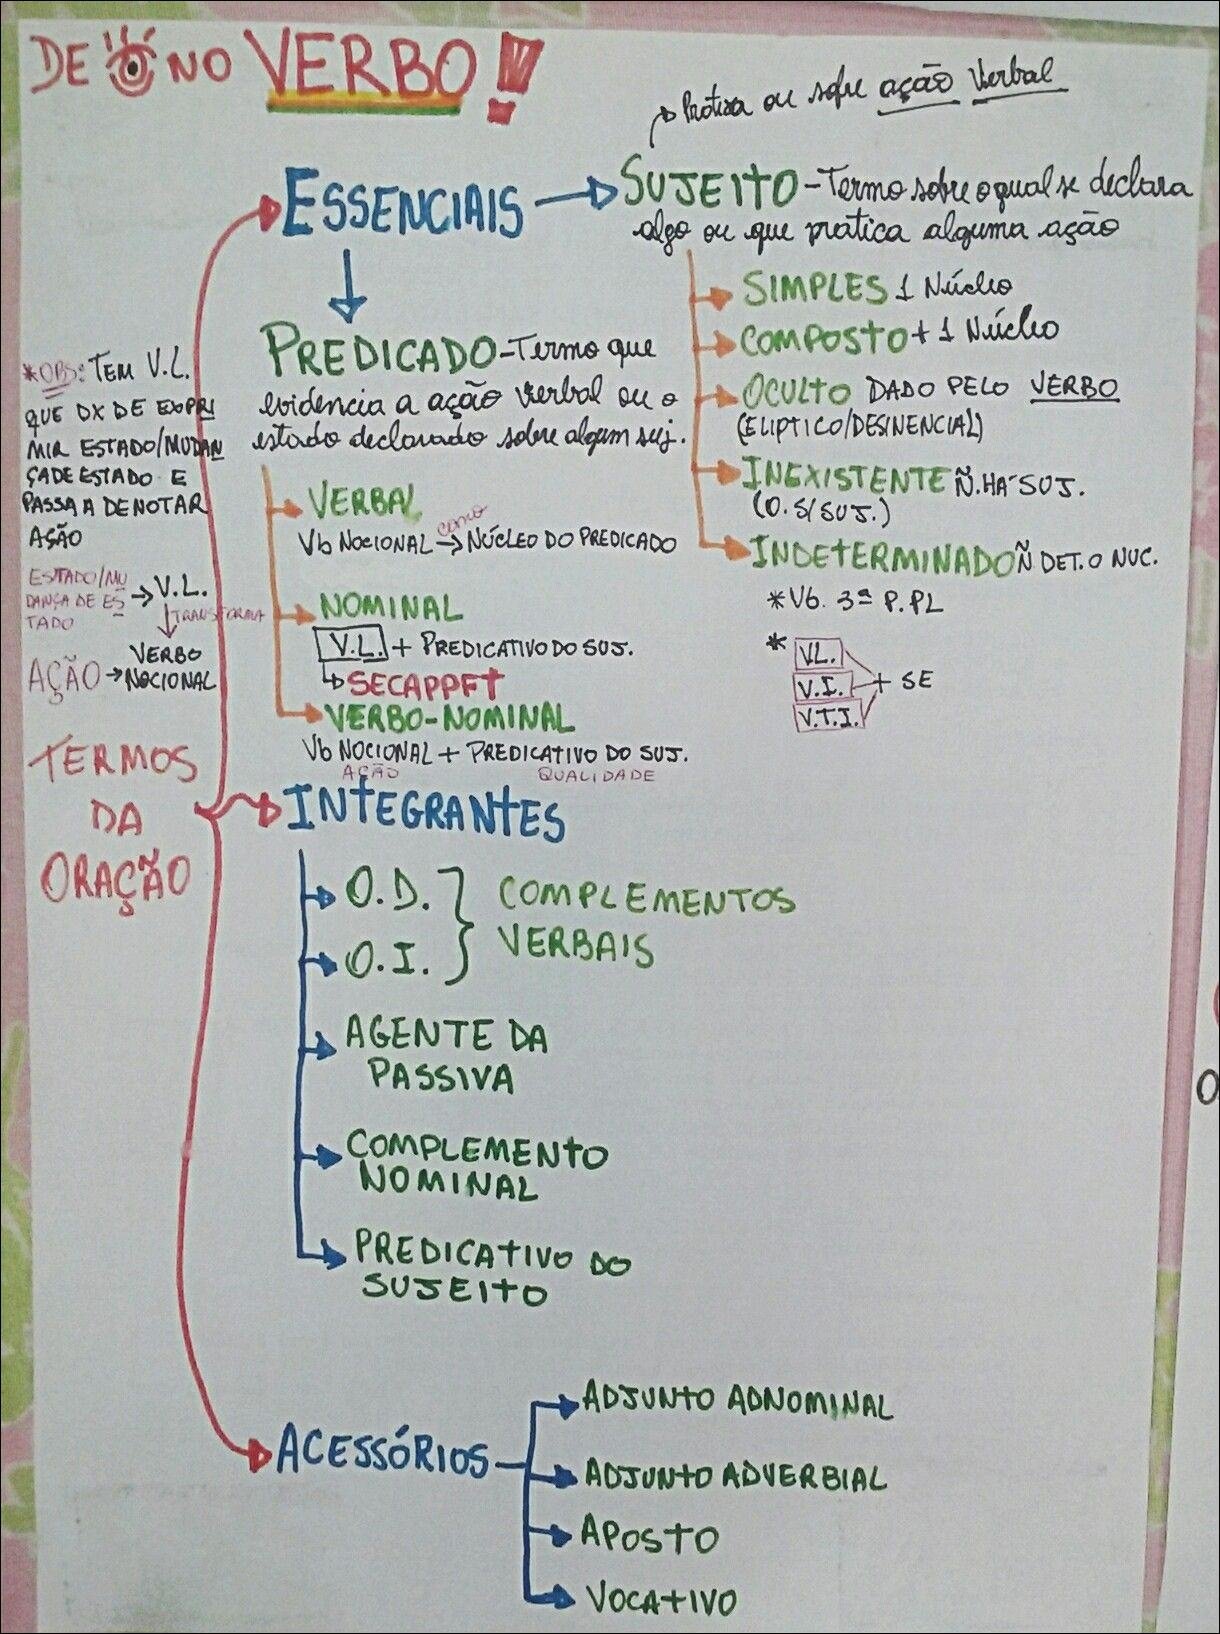 DE NO VERBO!
Pratica ou sofre ação verbal
ESSENCIAIS
SUJEITO - Termo sobre o qual se declara
algo ou que pratica alguma ação
SIMPLES 1 Núcleo
COMPOSTO + 1 Núcleo
OCULTO DADO PELO VERBO
(ELIPTICO/DESINENCIAL)
INEXISTENTE Ñ. HÁ SUJ.
(O. S/ SUJ.)
INDETERMINADO Ñ DET. O NUC.
*Vb. 3ª P. PL
*
V.L.
V.I.
V.T.I.
+ SE
PREDICADO - Termo que
evidencia a ação verbal ou o
estado declarado sobre algum suj.
VERBAL
Vb NOCIONAL como NÚCLEO DO PREDICADO
NOMINAL
V.L. + PREDICATIVO DO SUJ.
SECAPPFT
VERBO-NOMINAL
Vb NOCIONAL + PREDICATIVO DO SUJ.
AÇÃO QUALIDADE
*OBS: TEM V.L.
QUE DX DE EXPRI
MIR ESTADO/MUDAN
ÇA DE ESTADO E
PASSA A DENOTAR
AÇÃO
ESTADO/MU
DANÇA DE ES
TADO
V.L.
TRANSFORMA
AÇÃO
VERBO
NOCIONAL
TERMOS
DA
ORAÇÃO
INTEGRANTES
O.D.
O.I.
COMPLEMENTOS
VERBAIS
AGENTE DA
PASSIVA
COMPLEMENTO
NOMINAL
PREDICATIVO DO
SUJEITO
ACESSÓRIOS
ADJUNTO ADNOMINAL
ADJUNTO ADVERBIAL
APOSTO
VOCATIVO